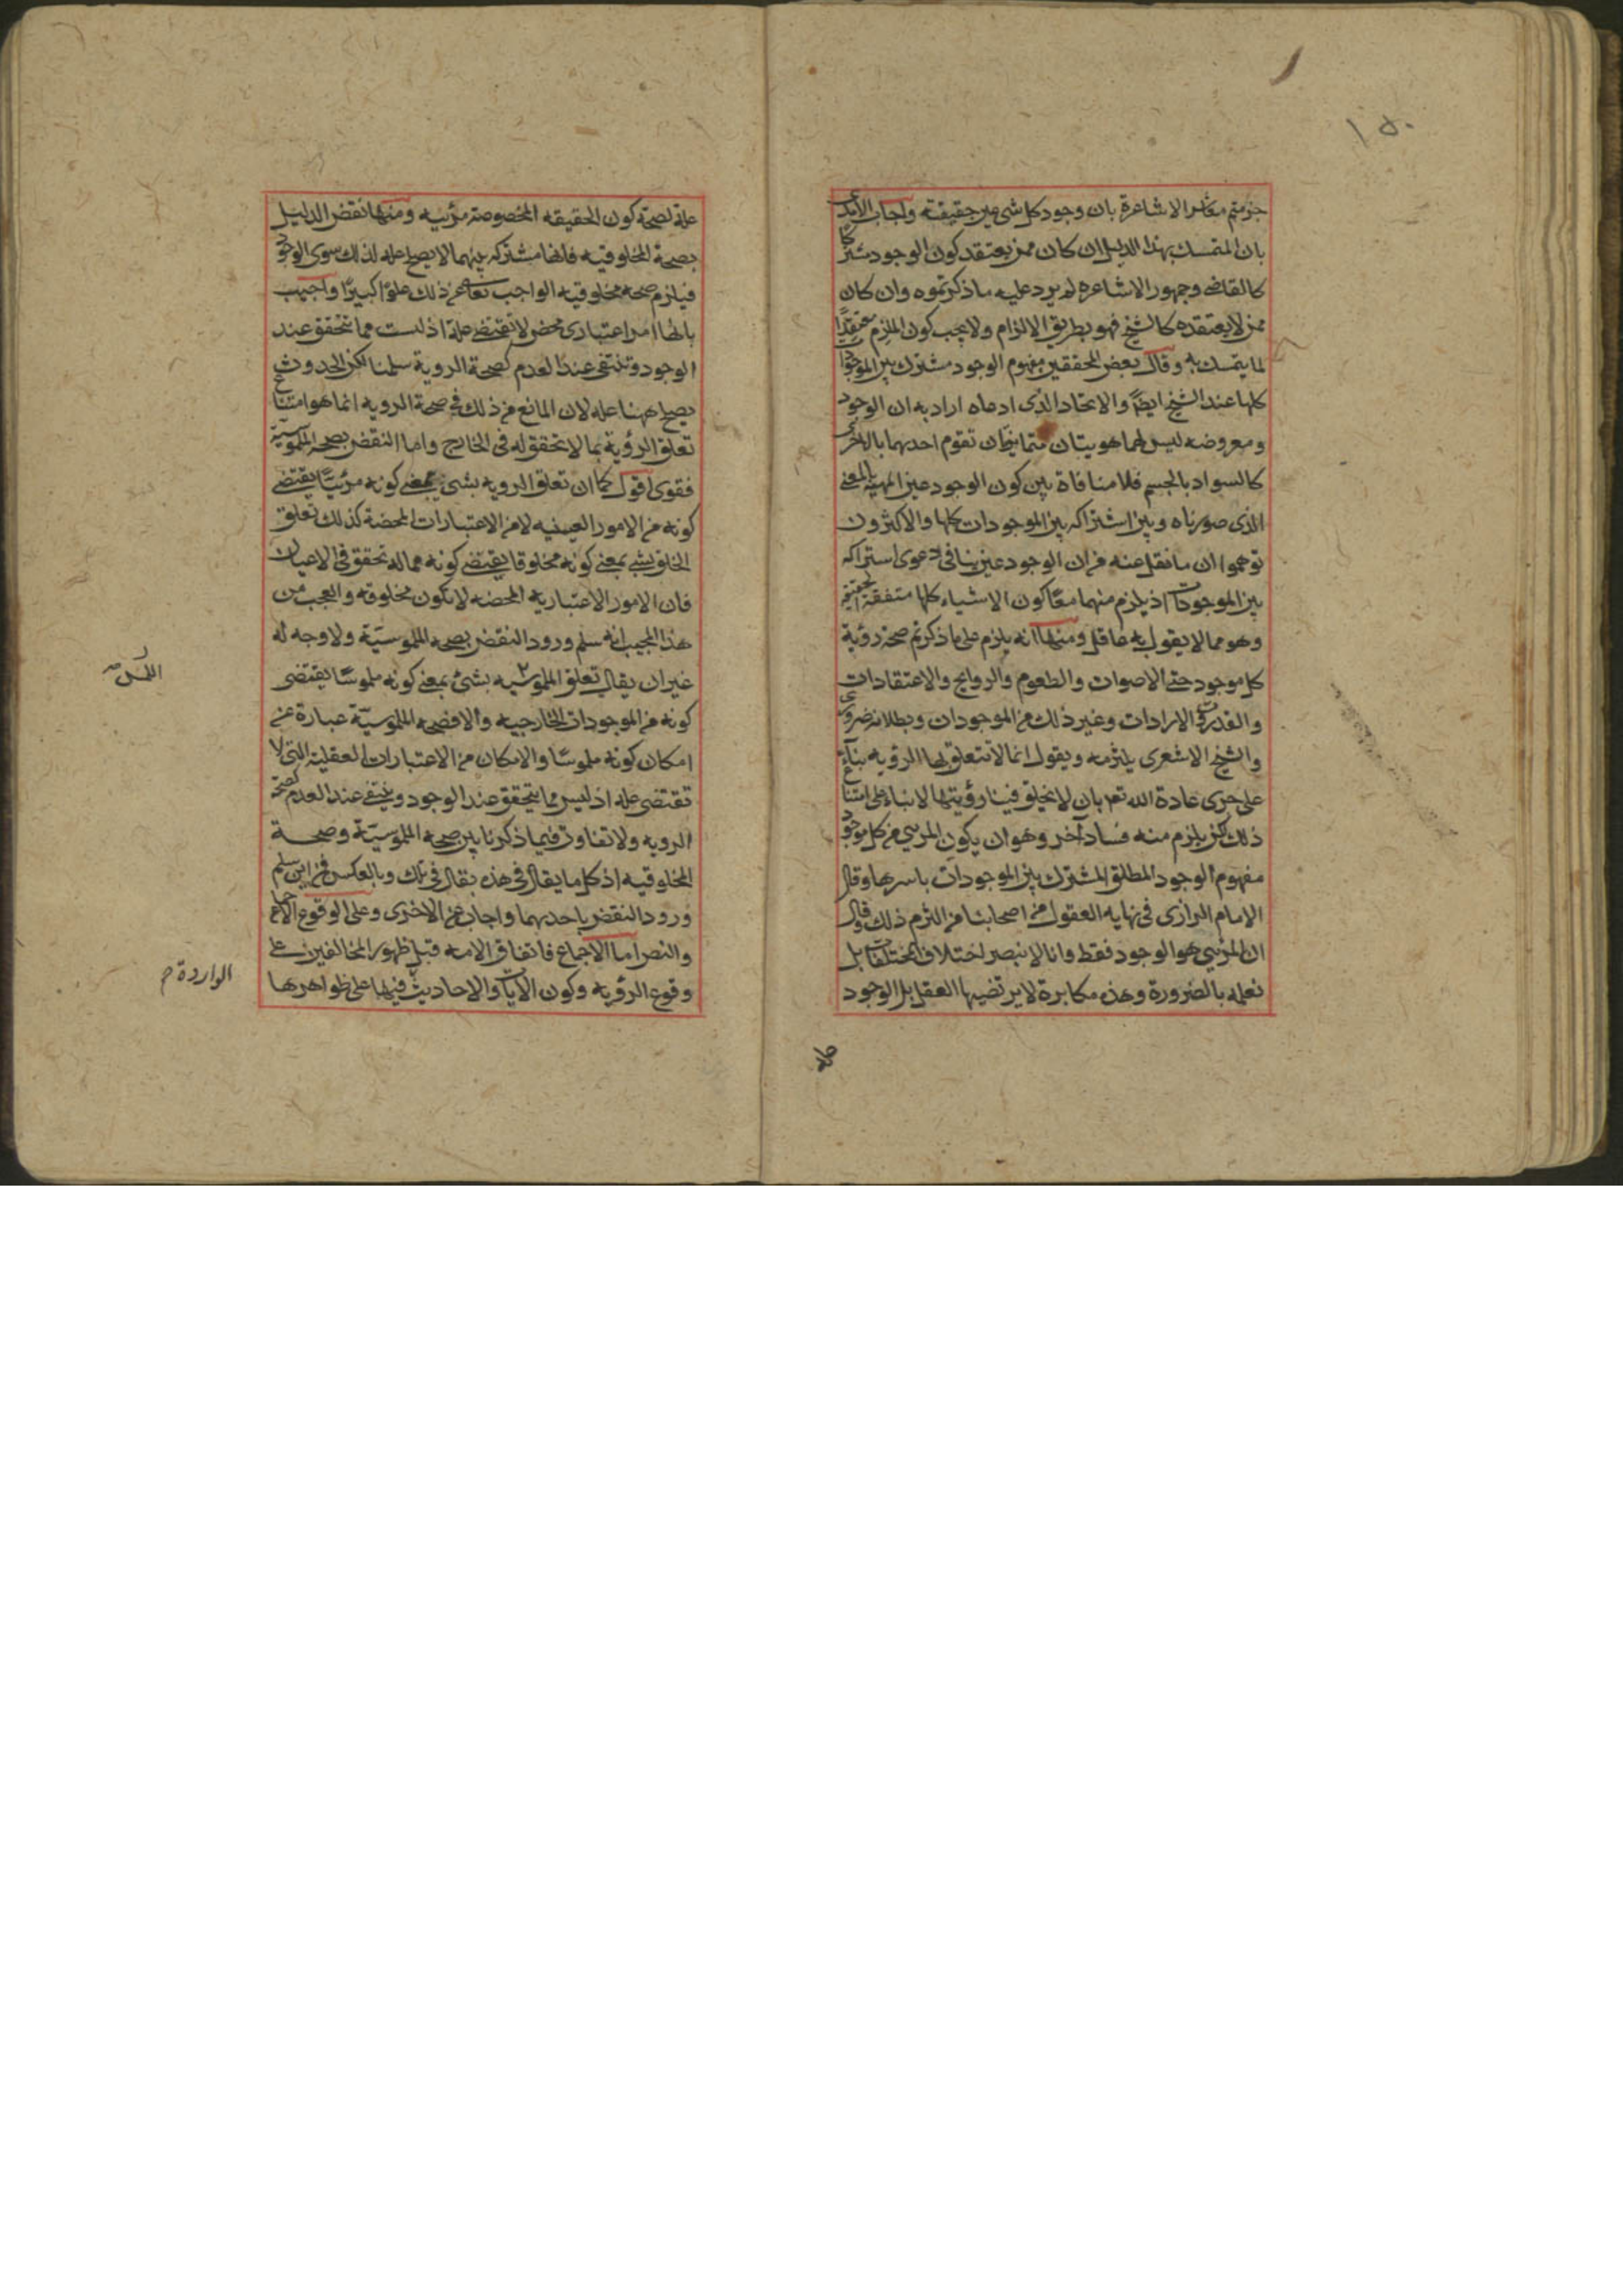 ١٥٠
جزمتم معاشر الاشاعرة بان وجود كل شئ عين حقيقته واجاب الآمدى
بان المتمسك بهذا الدليل ان كان ممن يعتقد كون الوجود مشتركا
كالقاضى وجمهور الاشاعره لم يرد عليه ما ذكرتموه وان كان
ممن لا يعتقده كالشيخ فهو بطريق الالزام ولا يجب كون الملزم معتقدًا
لما يتمسك به وقال بعض المحققين مفهوم الوجود مشترك بين الموجودات
كلها عند الشيخ ايضًا والاتحاد الذى ادعاه اراد به ان الوجود
ومعروضه ليس لهما هويتان متمايزتان تقوم احديهما بالاخرى
كالسواد بالجسم فلا منافاة بين كون الوجود عين المهية بالمعنى
الذى صورناه وبين اشتراكه بين الموجودات كلها والاكثرون
توهموا ان ما نقل عنه من ان الوجود عين ينافى دعوى اشتراكه
بين الموجودات اذ يلزم منهما معًا كون الاشياء كلها متفقة الحقيقة
وهو مما لا يقول به عاقل ومنها انه يلزم على ما ذكرتم صحة رؤية
كل موجود حتى الاصوات والطعوم والروايح والاعتقادات
والقدر والارادات وغير ذلك من الموجودات وبطلانه ضرورى
والشيخ الاشعرى يلتزمه ويقول انما لا تتعلق بها الرؤيه بناءً
على جرى عادة الله تعم بان لا يخلق فينا رؤيتها لا بناء على امتناع
ذلك لكن يلزم منه فساد آخر وهو ان يكون المرئى من كل موجود
مفهوم الوجود المطلق المشترك بين الموجودات باسرها وقال
الامام الرازى فى نهايه العقول من اصحابنا من التزم ذلك وقال
ان المرئى هو الوجود فقط وانا لا نبصر اختلاف المختلفات بل
نعلمه بالضرورة وهذه مكابرة لا يرتضيها العقل بل الوجود
علة لصحة كون الحقيقه المخصوصة مرئيه ومنها نقض الدليل
بصحة المخلوقيه فانها مشتركه بينهما لا يصلح عله لذلك سوى الوجود
فيلزم صحه مخلوقيه الواجب تعالى عن ذلك علوًا كبيرًا واجيب
بانها امر اعتبارى محض لا تقتضى علة اذ ليست مما تتحقق عند
الوجود وتنتفى عند العدم كصحة الروية سلمنا لكن الحدوث
يصلح ههنا عله لان المانع من ذلك فى صحة الرويه انما هو امتناع
تعلق الرؤية بما لا تحقق له فى الخارج واما النقض بصحه الملموسية
فقوى اقول كما ان تعلق الرويه بشئ بمعنى كونه مرئيًّا يقتضى
كونه من الامور العينيه لا من الاعتبارات المحضة كذلك تعلق
الخلق بشئ بمعنى كونه مخلوقا يقتضى كونه مما له تحقق فى الاعيان
فان الامور الاعتباريه المحضه لا تكون مخلوقه والعجب من
هذا المجيب انه سلم ورود النقض بصحه الملموسيّة ولا وجه له
غير ان يقال تعلق الملموسيه بشئ بمعنى كونه ملموسًا يقتضى
كونه من الموجودات الخارجيه والا فصحه الملموسيّة عبارة عن
امكان كونه ملموسًا والامكان من الاعتبارات العقلية التى لا
تقتضى عله اذ ليس مما يتحقق عند الوجود وينتفى عند العدم كصحة
الرويه ولا تفاوت فيما ذكرنا بين صحه الملموسيّة وصحة
المخلوقيه اذ كل ما يقال فى هذه يقال فى تلك وبالعكس فمن اين سلم
ورود النقض باحديهما واجاب عن الاخرى وعلى الوقوع الاجماع
والنص اما الاجماع فاتفاق الامه قبل ظهور المخالفين على
وقوع الرؤيه وكون الآيات والاحاديث فيها على ظواهرها
الواردة م